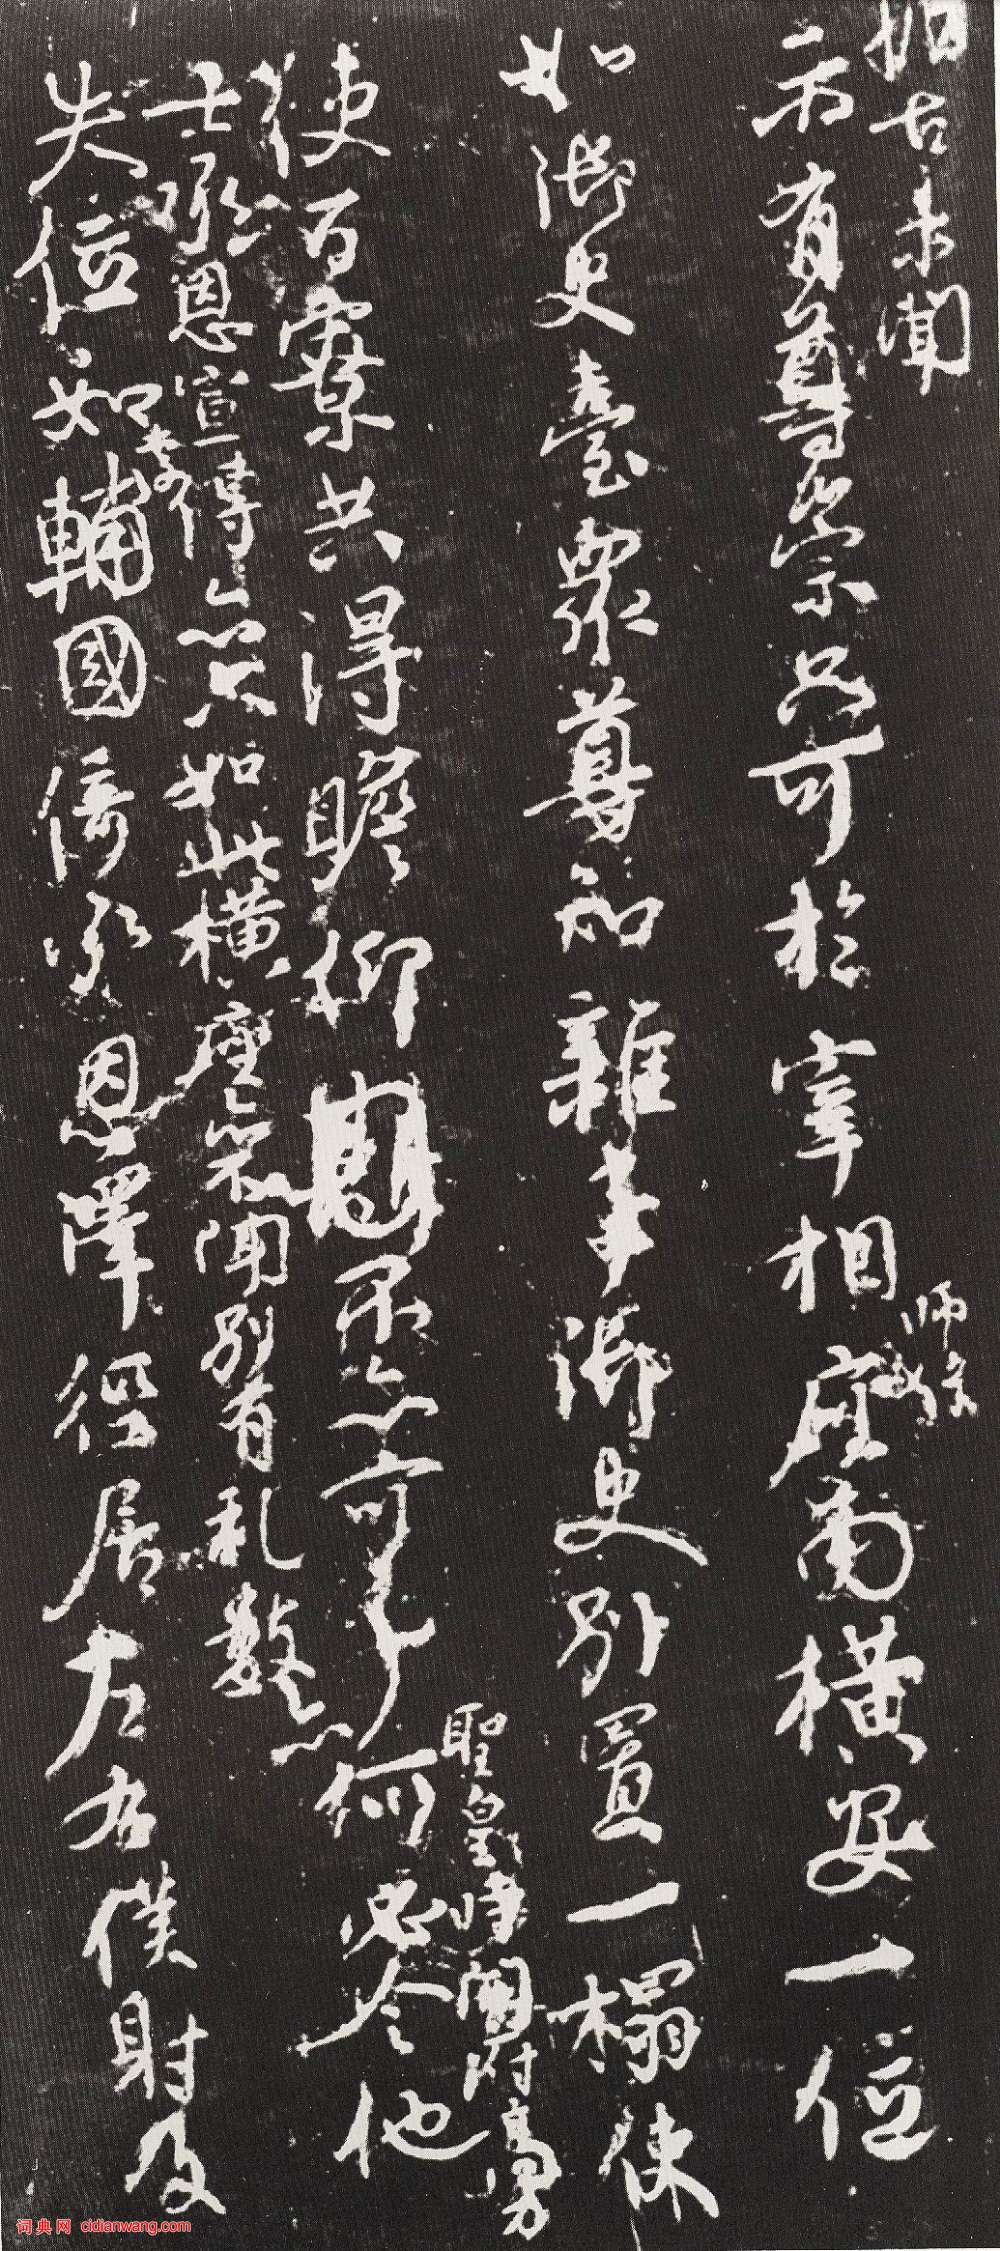 振古未聞
示有尊崇只可於宰相師保座南橫安一位
如御史臺眾尊知雜事御史別置一榻使
使百寮共得瞻仰不亦可乎
聖皇時開府高力
士承恩宣傳亦只如此橫座不聞別有礼數亦
何必令他
失位如李輔國倚承恩澤徑居左右僕射及
词典网 cidianwang.com